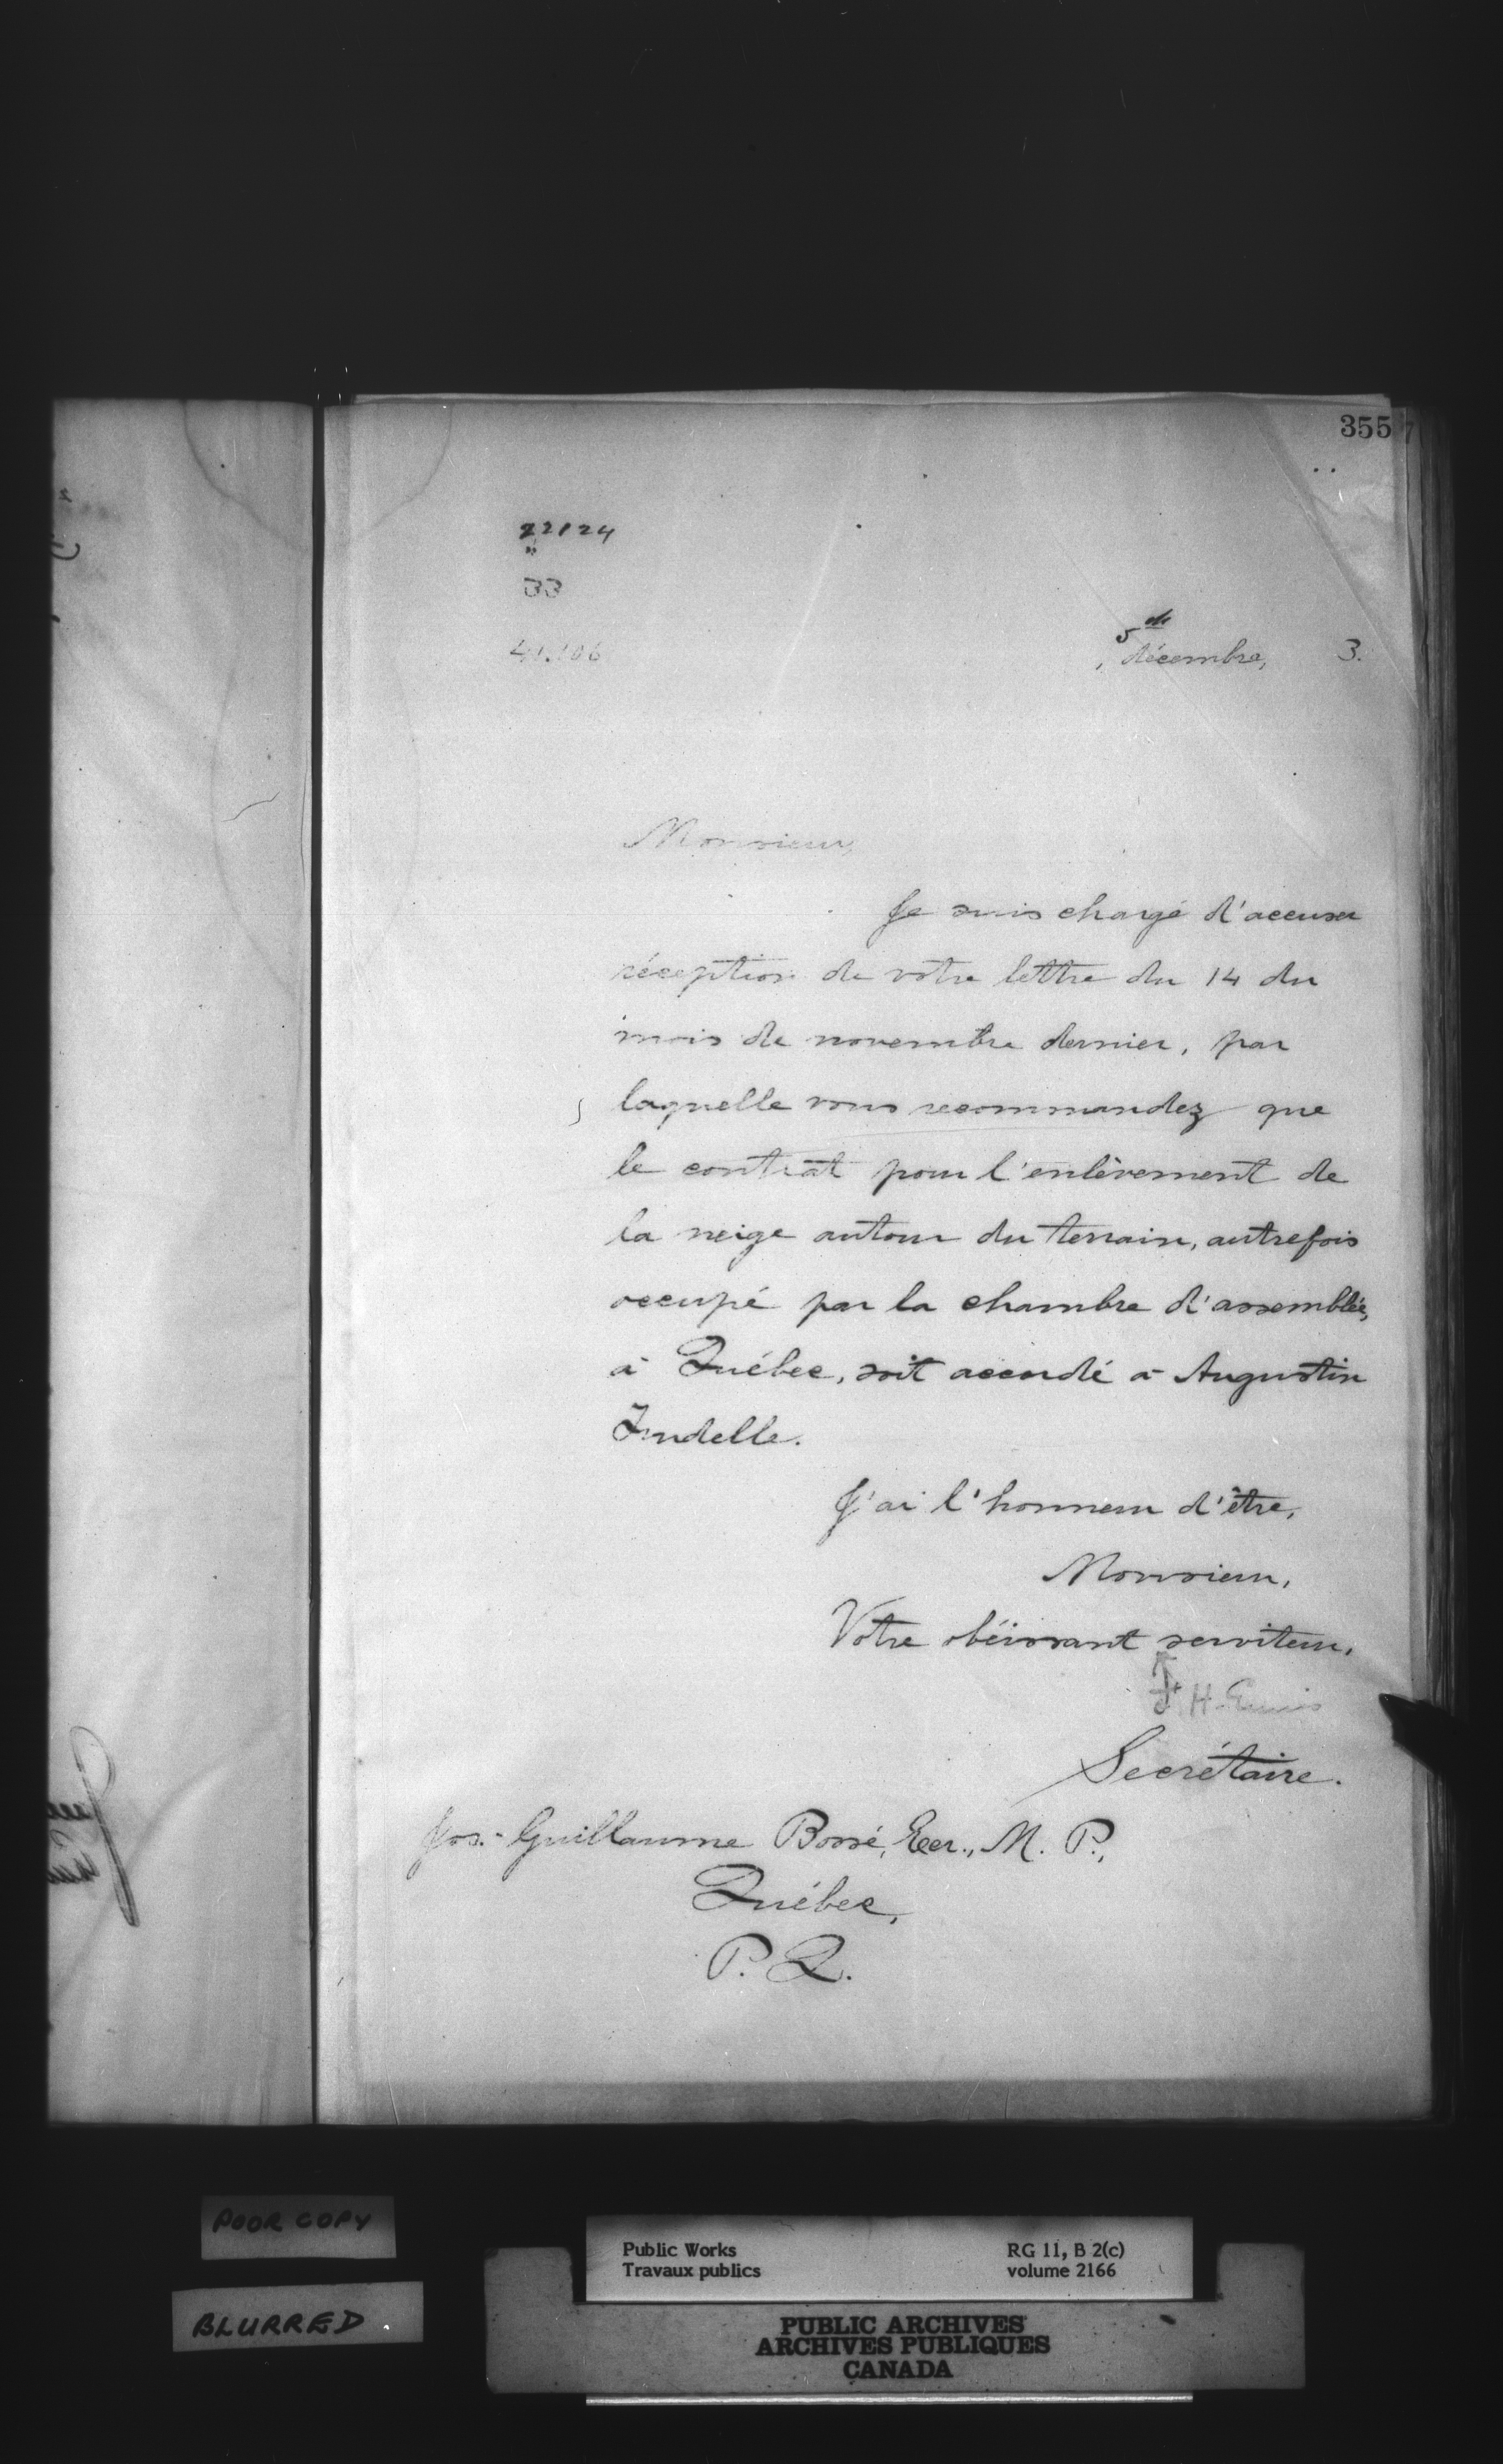 355
22124
"
33
41.106
5
décembre, 3.
Monsieur,
Je suis chargé d'accuser
réception de votre lettre du 14 du
mois de novembre dernier, par
laquelle vous recommandez que
le contrat pour l'enlèvement de
la neige autour du terrain, autrefois
occupé par la chambre d'assemblée,
à Québec, soit accordé à Augustin
J'ai l'honneur d'être,
Monsieur,
Votre obéissant serviteur,
F. H. Ennis
Secrétaire.
Jos.-Guillaume Bossé, Ecr., M. P.,
Québec,
P. Q.
POOR COPY
BLURRED.
Public Works RG 11, B 2(c)
Travaux publics volume 2166
PUBLIC ARCHIVES
ARCHIVES PUBLIQUES
CANADA